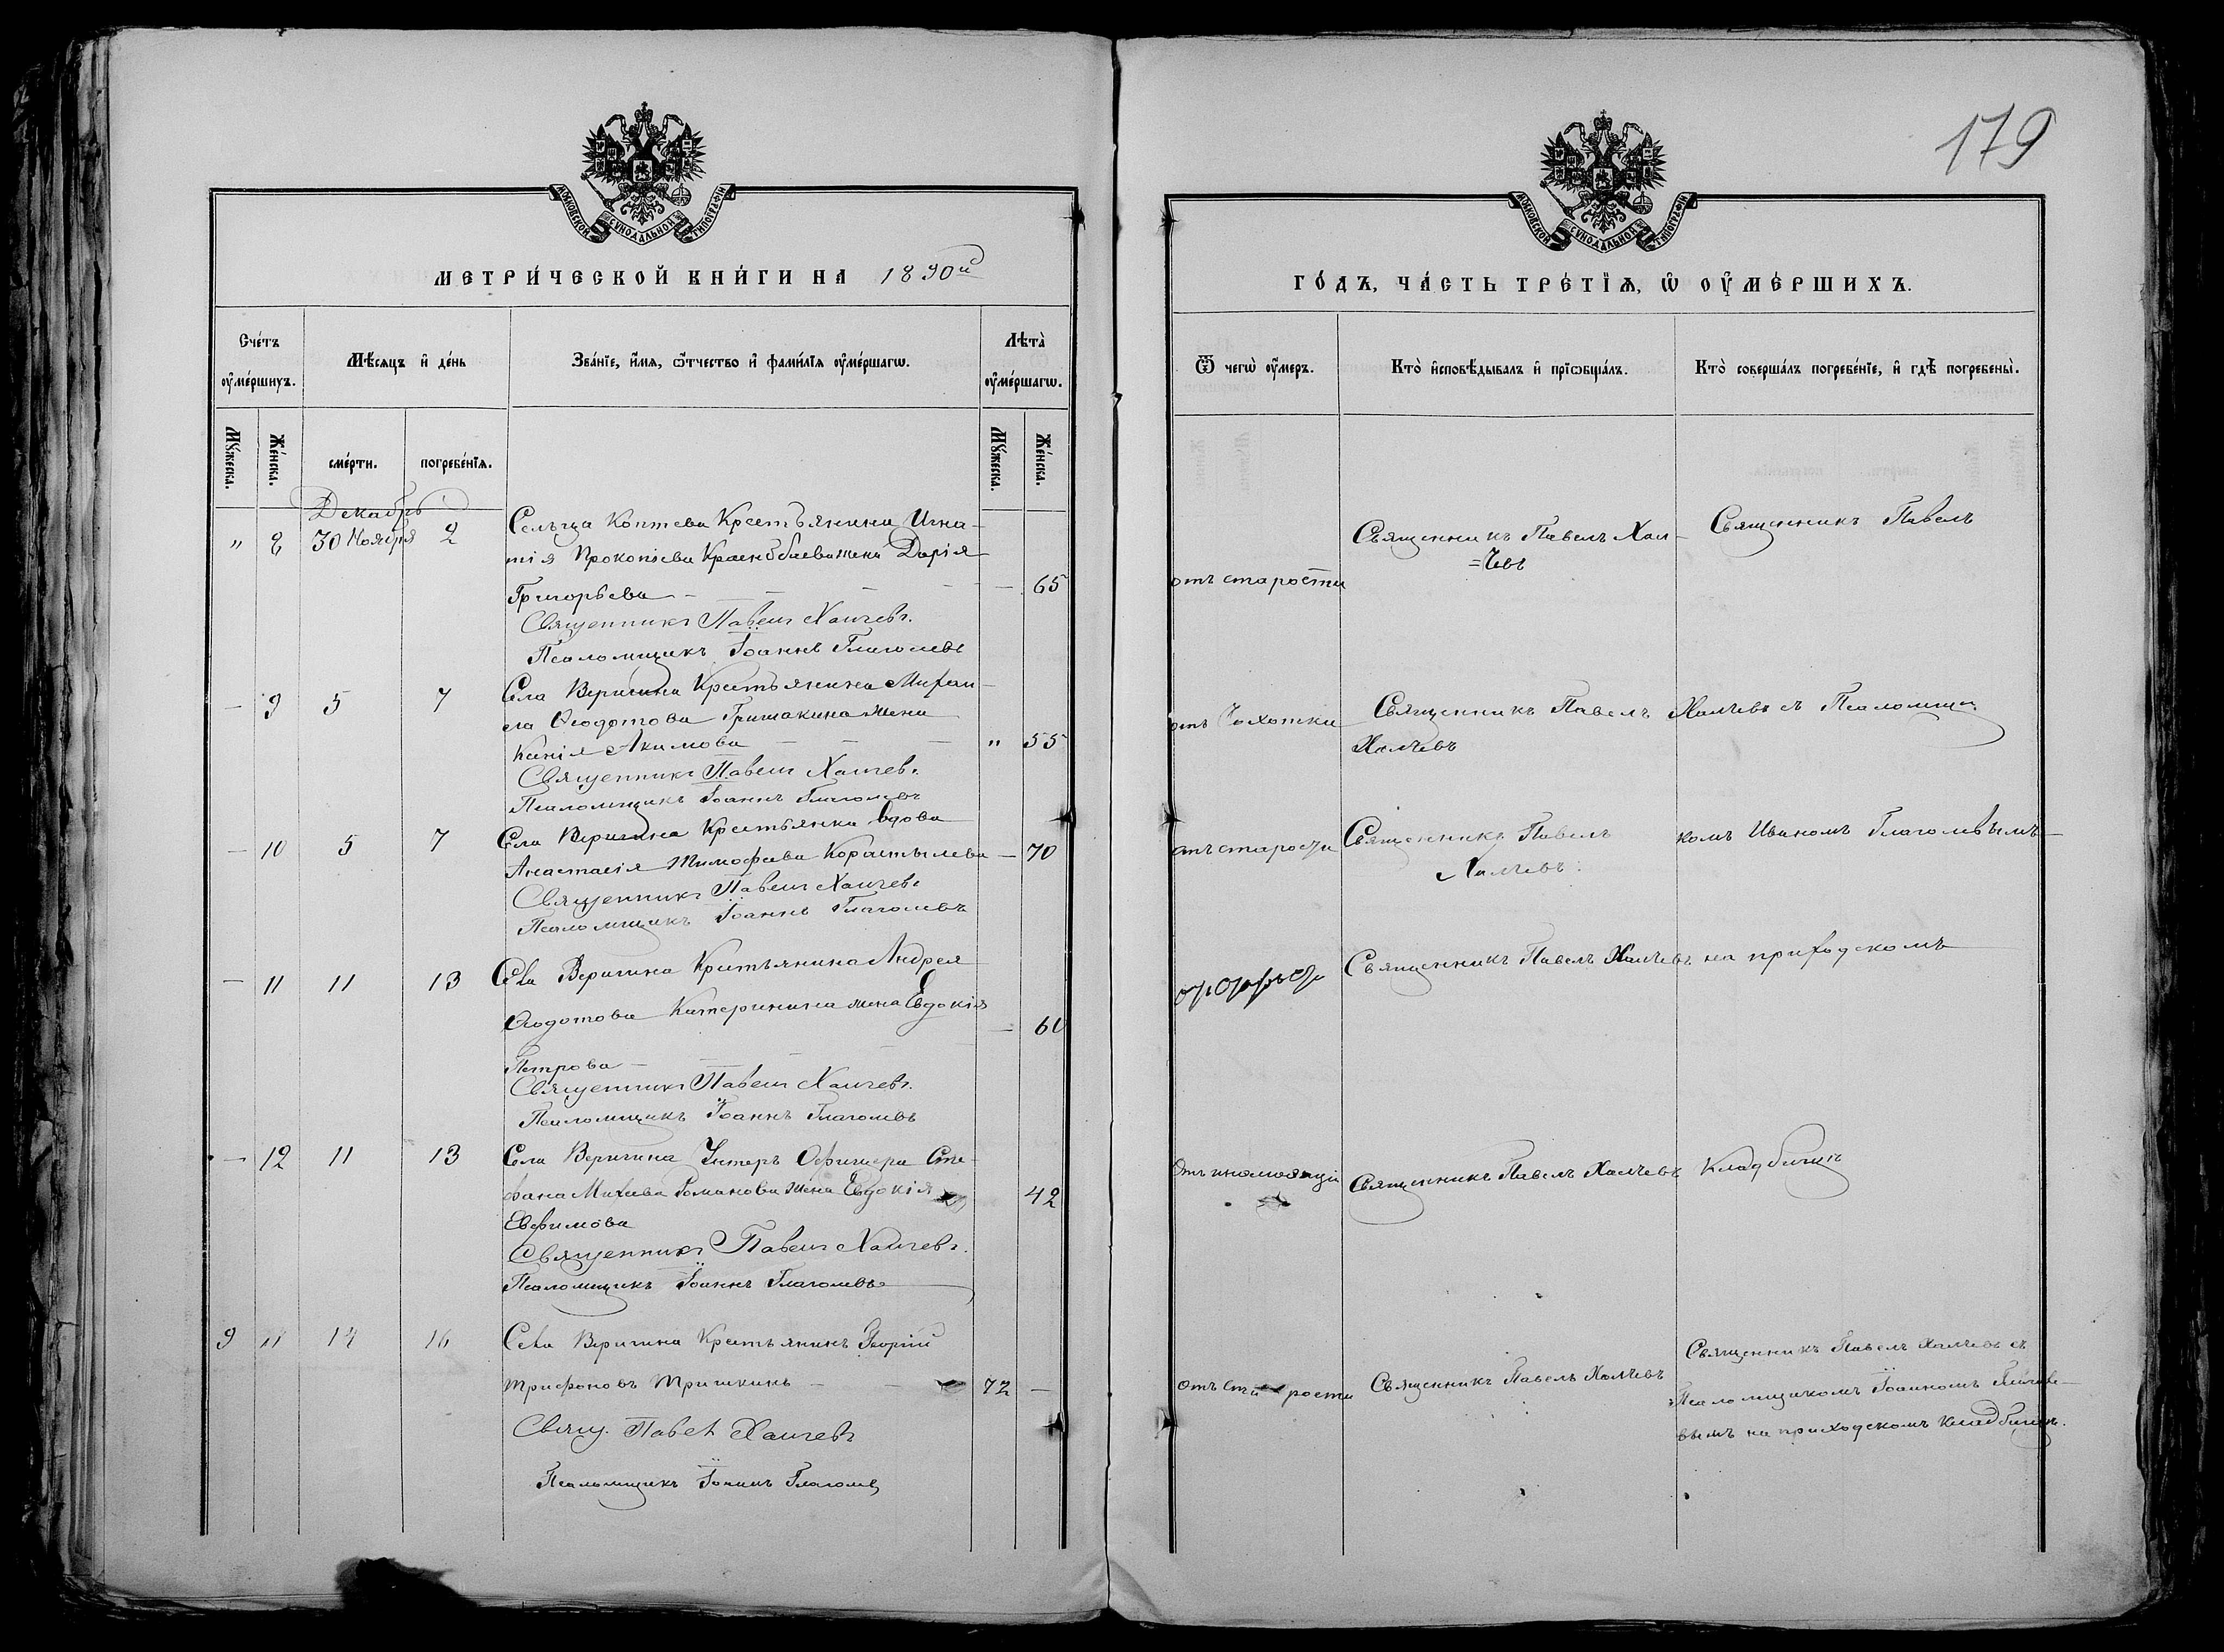 179
МОСКОВСКОЙ СУНОДАЛЬНОЙ ТИПОГРАФІИ
МЕТРИ́ЧЕСКОЙ КНИ́ГИ НА 1890й
Сче́тъ ᲂу҆ме́ршихъ.
Мѣ́сяцъ и҆ де́нь
Зва́нїе, и҆́мя, ѻ҆́тчество и҆ фами́лїя ᲂу҆ме́ршагѡ.
Лѣта̀ ᲂу҆ме́ршагѡ.
Мꙋ́жеска.
Же́нска.
сме́рти.
погребе́нїя.
Мꙋ́жеска.
Же́нска.
Декабрь
" 8 30 Ноября 2 Сельца Коптева Крестьянина Игна-
тія Прокопіева жена Дарія
Григорьева — — — — 65
Священникъ Павелъ Халчевъ.
Псаломщикъ Іоаннъ Глаголевъ
— 9 5 7 Села Веригина Крестьянина Михаи-
ла Ѳеодотова Гришакина жена
Акимова — — — " 55
Священникъ Павелъ Халчевъ.
Псаломщикъ Іоаннъ Глаголевъ
— 10 5 7 Села Веригина Крестьянка вдова
Анастасія Тимофеева Коростылева — 70
Священникъ Павелъ Халчевъ
Псаломщикъ Іоаннъ Глаголевъ
— 11 11 13 Села Веригина Крестьянина Андрея
Ѳеодотова Катеринина жена Евдокія
— 60
Петрова —
Священникъ Павелъ Халчевъ.
Псаломщикъ Іоаннъ Глаголевъ
— 12 11 13 Села Веригина Унтеръ Офицера Сте-
фана Михеева Романова жена Евдокія 42
Евфимова
Священникъ Павелъ Халчевъ.
Псаломщикъ Іоаннъ Глаголевъ
9 " 14 16 Села Веригина Крестьянинъ Георгій
Трифоновъ Тришкинъ — — 72 —
Свящ. Павел Халчевъ
Псаломщикъ Іоаннъ Глаголев
МОСКОВСКОЙ СУНОДАЛЬНОЙ ТИПОГРАФІИ
ГО́ДЪ, ЧА́СТЬ ТРЕ́ТЇѦ, Ѡ҆ ОУ҆МЕ́РШИХЪ.
Ѿ чегѡ̀ ᲂу҆́меръ.
Кто̀ и҆сповѣ́дывалъ и҆ прїѡбща́лъ.
Кто̀ соверша́лъ погребе́нїе, и҆ гдѣ̀ погребены̀.
отъ старости
Священникъ Павелъ Хал-
=чевъ
Священникъ Павелъ
отъ Чахотки
Священникъ Павелъ
Халчевъ
Халчевъ съ Псаломщи-
отъ старости
Священникъ Павелъ
Халчевъ.
комъ Иваномъ Глаголевымъ
Священникъ Павелъ Халчевъ
на приходскомъ
Священникъ Павелъ Халчевъ
Кладбищѣ
отъ старости
Священникъ Павелъ Халчевъ
Священникъ Павелъ Халчевъ съ
Псаломщикомъ Іоанномъ Глаголе-
вымъ на приходскомъ кладбищѣ.